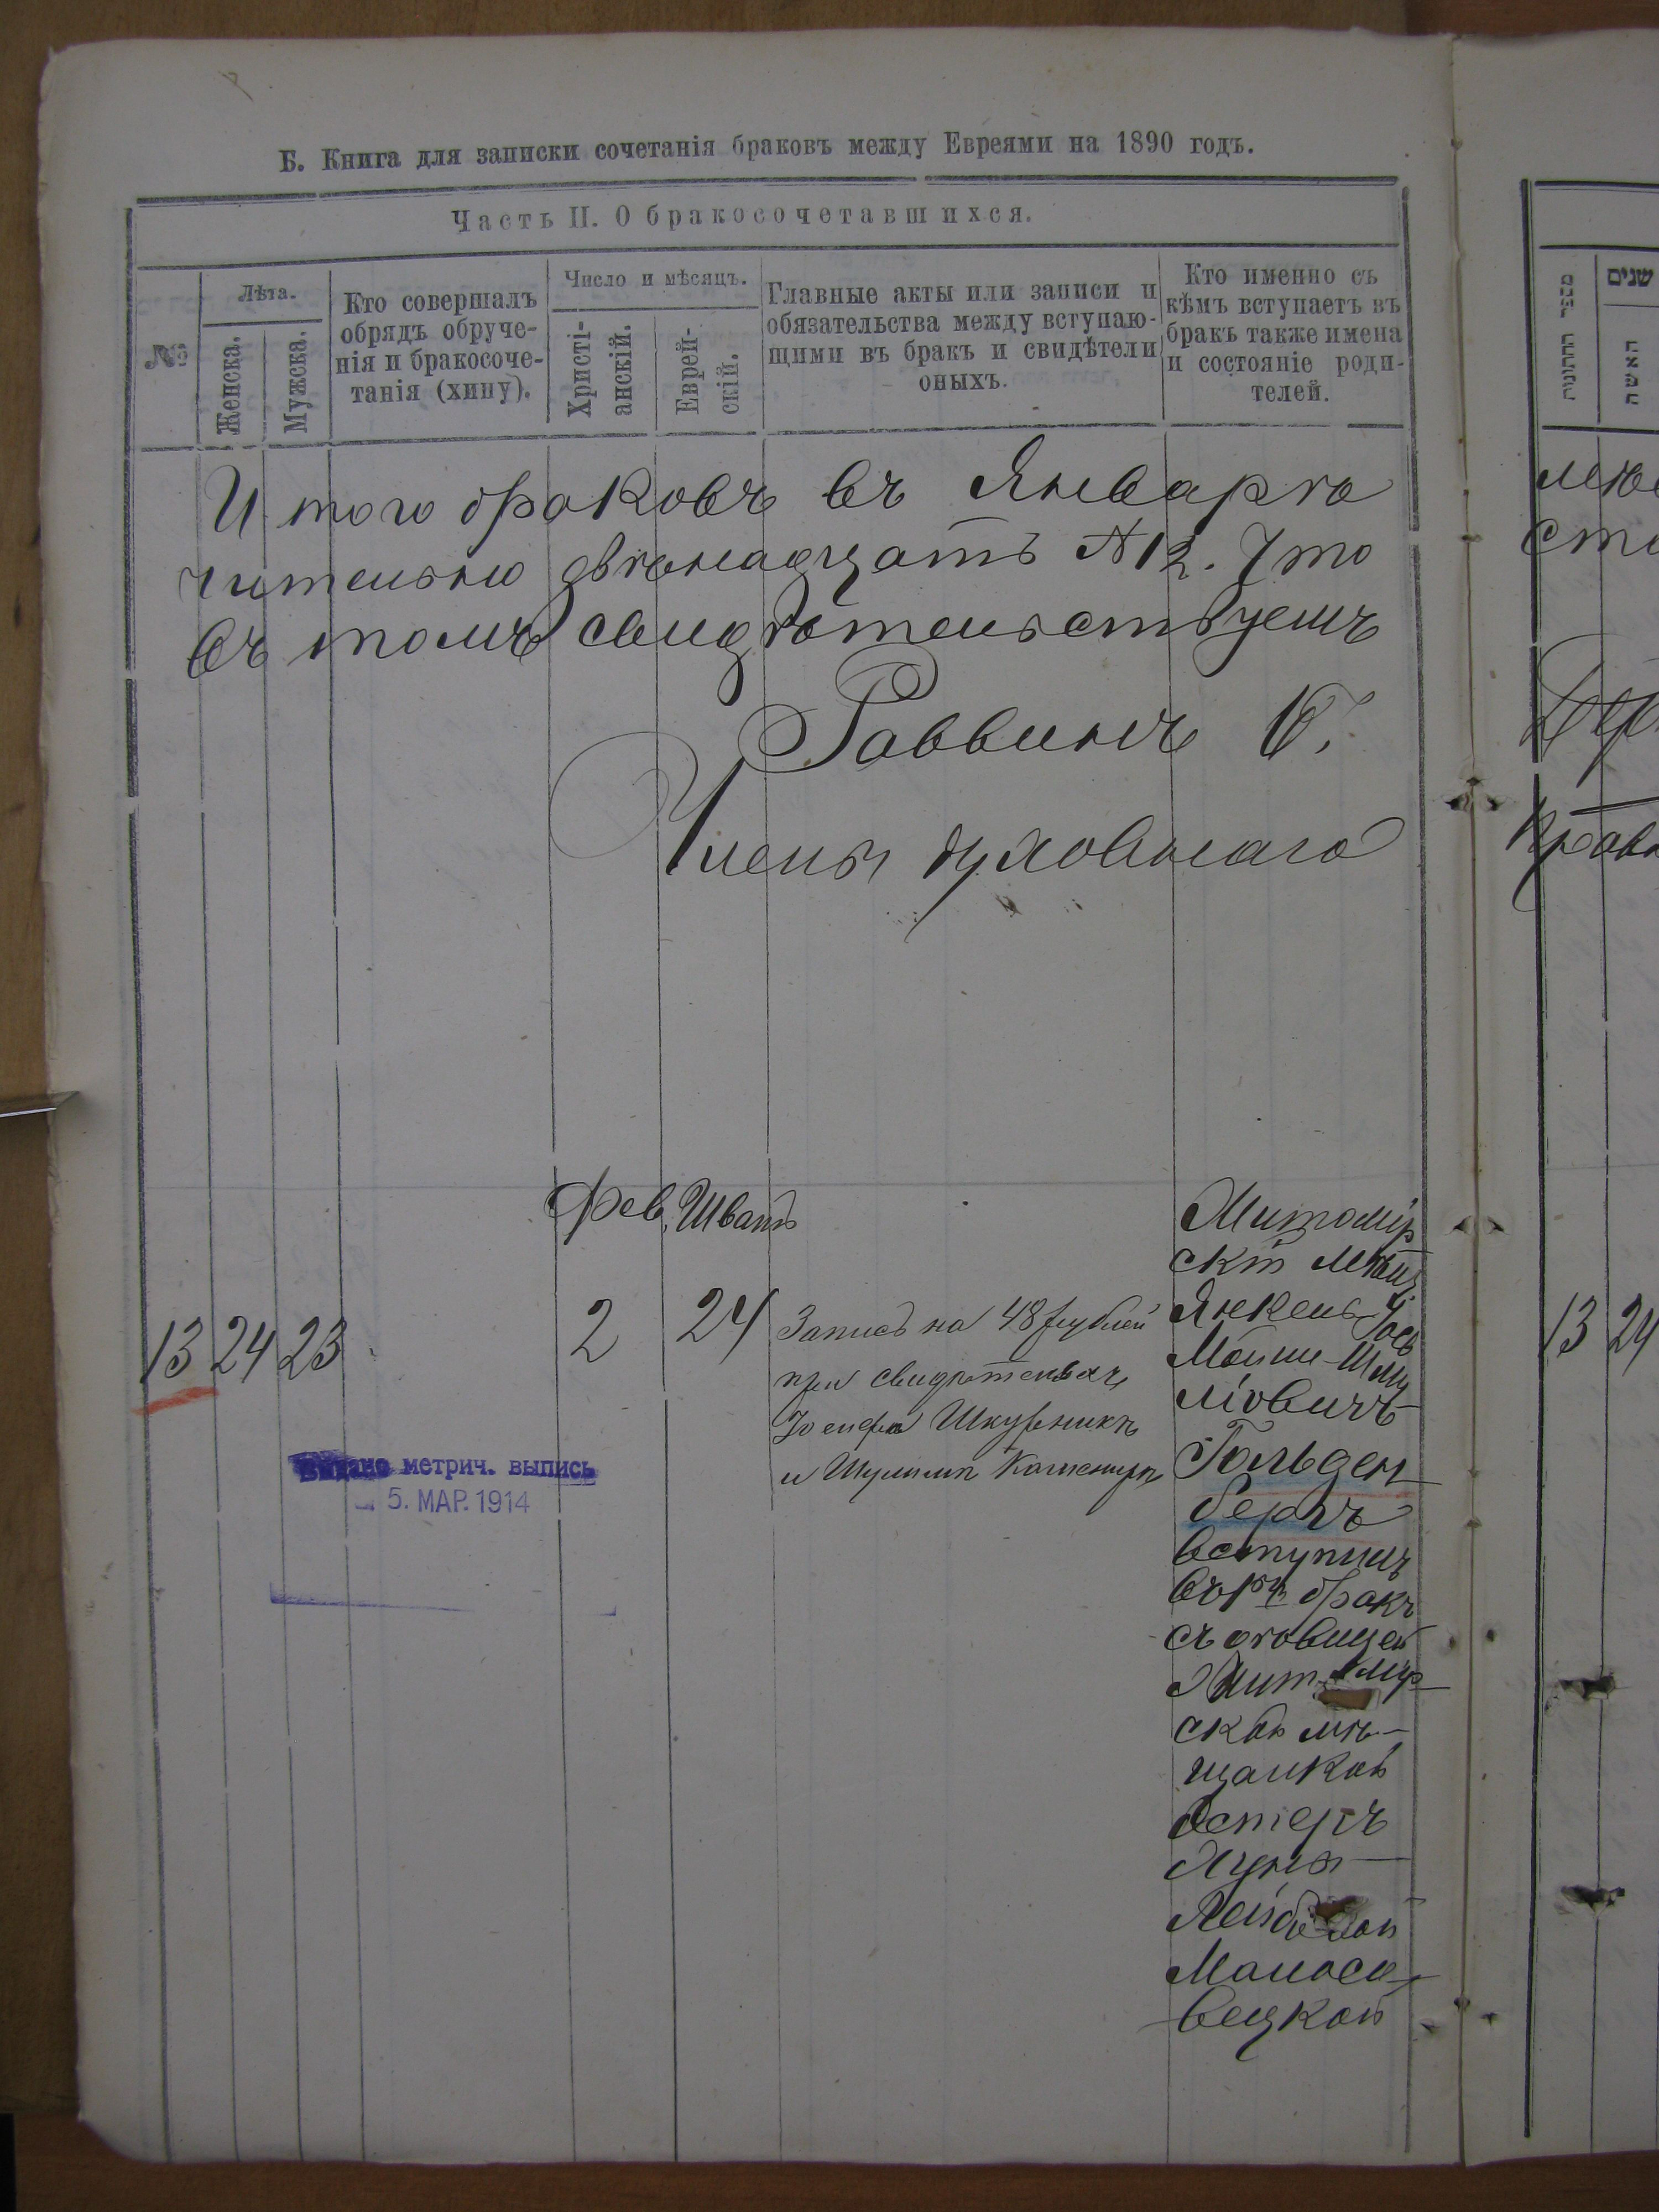 Б. Книга для записки сочетанія браковъ между Евреями на 1890 годъ.
Часть II. О бракосочетавшихся.
№
Лѣта.
Женска.
Мужска.
Кто совершалъ
обрядъ обруче-
нія и бракосоче-
танія (хипу).
Число и мѣсяцъ.
Христі-
анскій.
Еврей-
скій.
Главные акты или записи и
обязательства между вступаю-
щими въ бракъ и свидѣтели
оныхъ.
Кто именно съ
кѣмъ вступаетъ въ
бракъ также имена
и состояніе роди-
телей.
מספר החתונות
שנים
האשה
Итого браковъ въ Январѣ
чительно двѣнадцать №12. Что
въ томъ свидѣтельствуемъ
Раввинъ
Члены духовнаго
Фев. Шватъ
13 24 23 2 24
Запись на 48 рублей
при свидѣтеляхъ
Іосифа Шкурникъ
и Шулимъ
Житомір
скій мѣщ.
Янкель-Іось
Мойше-Шму
ліовичъ
Гольден
бергъ
вступилъ
въ 1й бракъ
съ дѣвицей
Житомір
ской мѣ-
щанкой
Естеръ
Хуня
Маносо-
вецкой
Выдана метрич. выпись
5. МАР. 1914
13 24